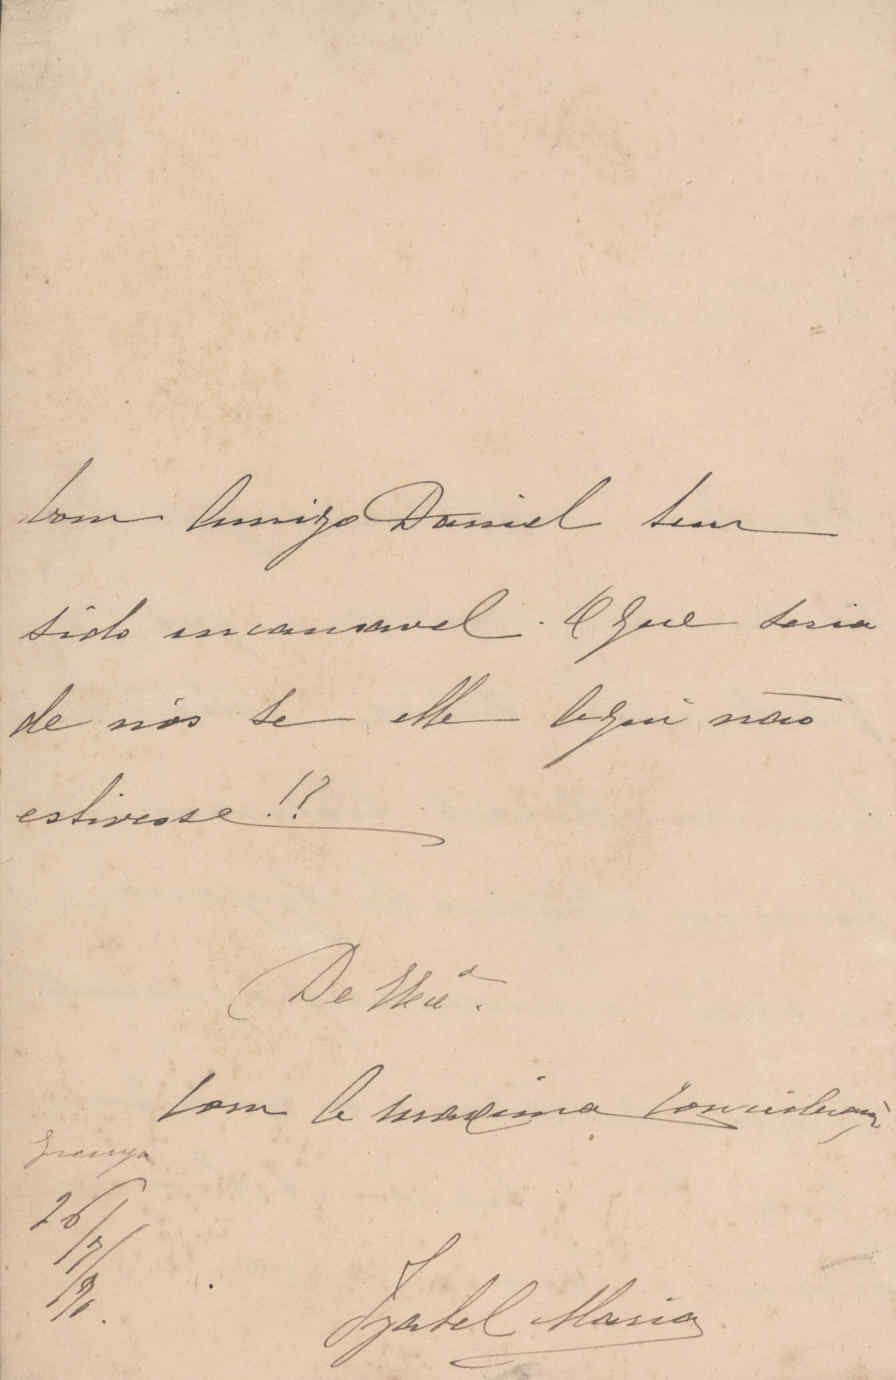 bom Amigo Daniel tem
sido incansavel. O que seria
de nós se elle Aqui não
estivesse!?
De
Com a maxima consideração
Granja
26/7/90.
Izabel Maria